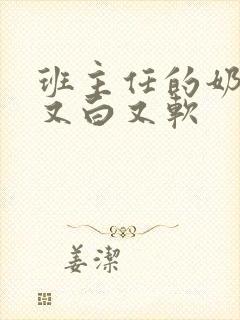 班主任的奶
又白又软
姜潔